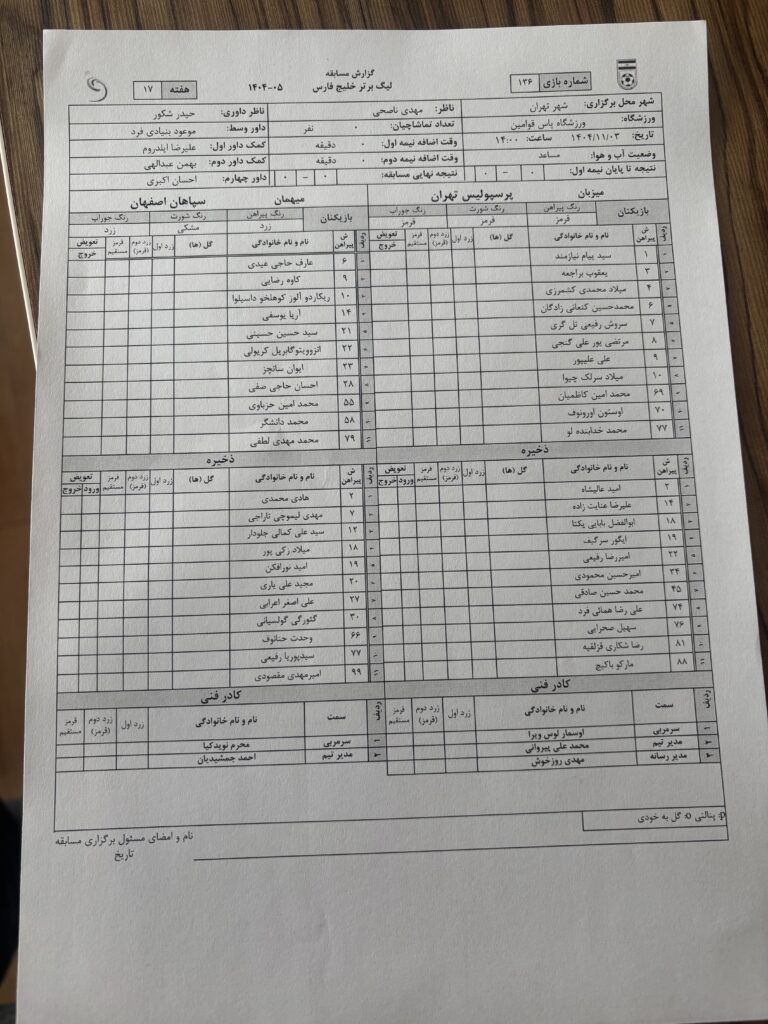 گزارش مسابقه
لیگ برتر خلیج فارس ۰۵-۱۴۰۴
شماره بازی ۱۳۶
هفته ۱۷
شهر محل برگزاری: شهر تهران
ورزشگاه: ورزشگاه پاس قوامین
تاریخ: ۱۴۰۴/۱۱/۰۳ ساعت: ۱۴:۰۰
وضعیت آب و هوا: مساعد
نتیجه تا پایان نیمه اول: ۰ - ۰
ناظر: مهدی ناصحی
تعداد تماشاچیان: ۰ نفر
وقت اضافه نیمه اول: ۰ دقیقه
وقت اضافه نیمه دوم: ۰ دقیقه
نتیجه نهایی مسابقه: ۰ - ۰
ناظر داوری: حیدر شکور
داور وسط: موعود بنیادی فرد
کمک داور اول: علیرضا ایلدروم
کمک داور دوم: بهمن عبدالهی
داور چهارم: احسان اکبری
میزبان پرسپولیس تهران
بازیکنان رنگ پیراهن رنگ شورت رنگ جوراب
قرمز قرمز قرمز
ردیف ش پیراهن نام و نام خانوادگی گل (ها) زرد اول زرد دوم (قرمز) قرمز مستقیم تعویض خروج
۱ سید پیام نیازمند
۳ یعقوب براجعه
۴ میلاد محمدی کشمرزی
۶ محمدحسین کنعانی زادگان
۷ سروش رفیعی تل گری
۸ مرتضی پور علی گنجی
۹ علی علیپور
۱۰ میلاد سرلک چیوا
۶۹ محمد امین کاظمیان
۷۰ اوستون اورونوف
۷۷ محمد خدابنده لو
ذخیره
ردیف ش پیراهن نام و نام خانوادگی گل (ها) زرد اول زرد دوم (قرمز) قرمز مستقیم تعویض ورود خروج
۲ امید عالیشاه
۱۴ علیرضا عنایت زاده
۱۸ ابوالفضل بابایی یکتا
۱۹ ایگور سرگیف
۲۲ امیررضا رفیعی
۳۴ امیرحسین محمودی
۴۵ محمد حسین صادقی
۷۴ علی رضا همائی فرد
۷۶ سهیل صحرایی
۸۱ رضا شکاری قزلقیه
۸۸ مارکو باکیچ
کادر فنی
ردیف سمت نام و نام خانوادگی زرد اول زرد دوم (قرمز) قرمز مستقیم
۱ سرمربی اوسمار لوس ویرا
۲ مدیر تیم محمد علی پیروانی
۳ مدیر رسانه مهدی روزخوش
میهمان سپاهان اصفهان
بازیکنان رنگ پیراهن رنگ شورت رنگ جوراب
زرد مشکی زرد
ردیف ش پیراهن نام و نام خانوادگی گل (ها) زرد اول زرد دوم (قرمز) قرمز مستقیم تعویض خروج
۶ عارف حاجی عیدی
۹ کاوه رضایی
۱۰ ریکاردو آلوز کوهلخو داسیلوا
۱۴ آریا یوسفی
۲۱ سید حسین حسینی
۲۲ انزووینوگابریل کریولی
۲۳ ایوان سانچز
۲۸ احسان حاجی صفی
۵۵ محمد امین حزباوی
۵۸ محمد دانشگر
۷۹ محمد مهدی لطفی
ذخیره
ردیف ش پیراهن نام و نام خانوادگی گل (ها) زرد اول زرد دوم (قرمز) قرمز مستقیم تعویض ورود خروج
۲ هادی محمدی
۷ مهدی لیموچی تاراجی
۱۲ سید علی کمالی جلودار
۱۸ میلاد زکی پور
۱۹ امید نورافکن
۲۰ مجید علی یاری
۲۷ علی اصغر اعرابی
۳۰ گئورگی گولسیانی
۶۶ وحدت حنانوف
۷۷ سیدپوریا رفیعی
۹۹ امیرمهدی مقصودی
کادر فنی
ردیف سمت نام و نام خانوادگی زرد اول زرد دوم (قرمز) قرمز مستقیم
۱ سرمربی محرم نویدکیا
۲ مدیر تیم احمد جمشیدیان
p: پنالتی o: گل به خودی
نام و امضای مسئول برگزاری مسابقه
تاریخ